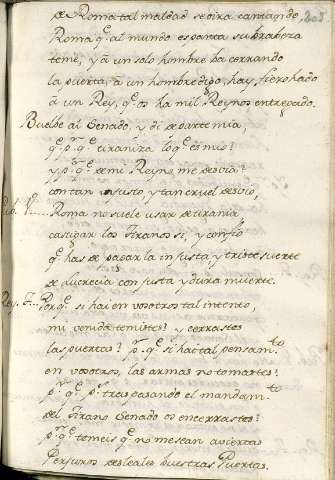 203
de Roma tal maldad se oira cantando
Roma q.e al mundo espanta su braveza
teme, y à un solo hombre ha cerrando
la puerta, à un hombre digo, hay fiero hado
à un Rey, q.e os ha mil Reynos entregado.
Buelbe al Senado, y di de parte mia,
q.e p.r q.e tiraniza lo q.e es mio?
y p.r q.e de mi Reyno me desvia?
con tan injusto y tan cruel desvio,
Roma no suele usar de tirania
castigar los tiranos si, y confio
q.e has de pagar la injusta y triste suerte
de Lucrecia con justa y dura muerte.
Rey. T... Porq.e si hai en vosotros tal intento,
mi venida temistes? y cerrastes
las puertas? p.r q.e si hai tal pensam.to
en vosotros, las armas no tomastes?
p.r q.e p.r tras pasando el mandam.to
del tirano Senado os encerrastes?
p.r q.e temeis q.e no me sean aviertas
Perjuros desleales buestras Puertas.